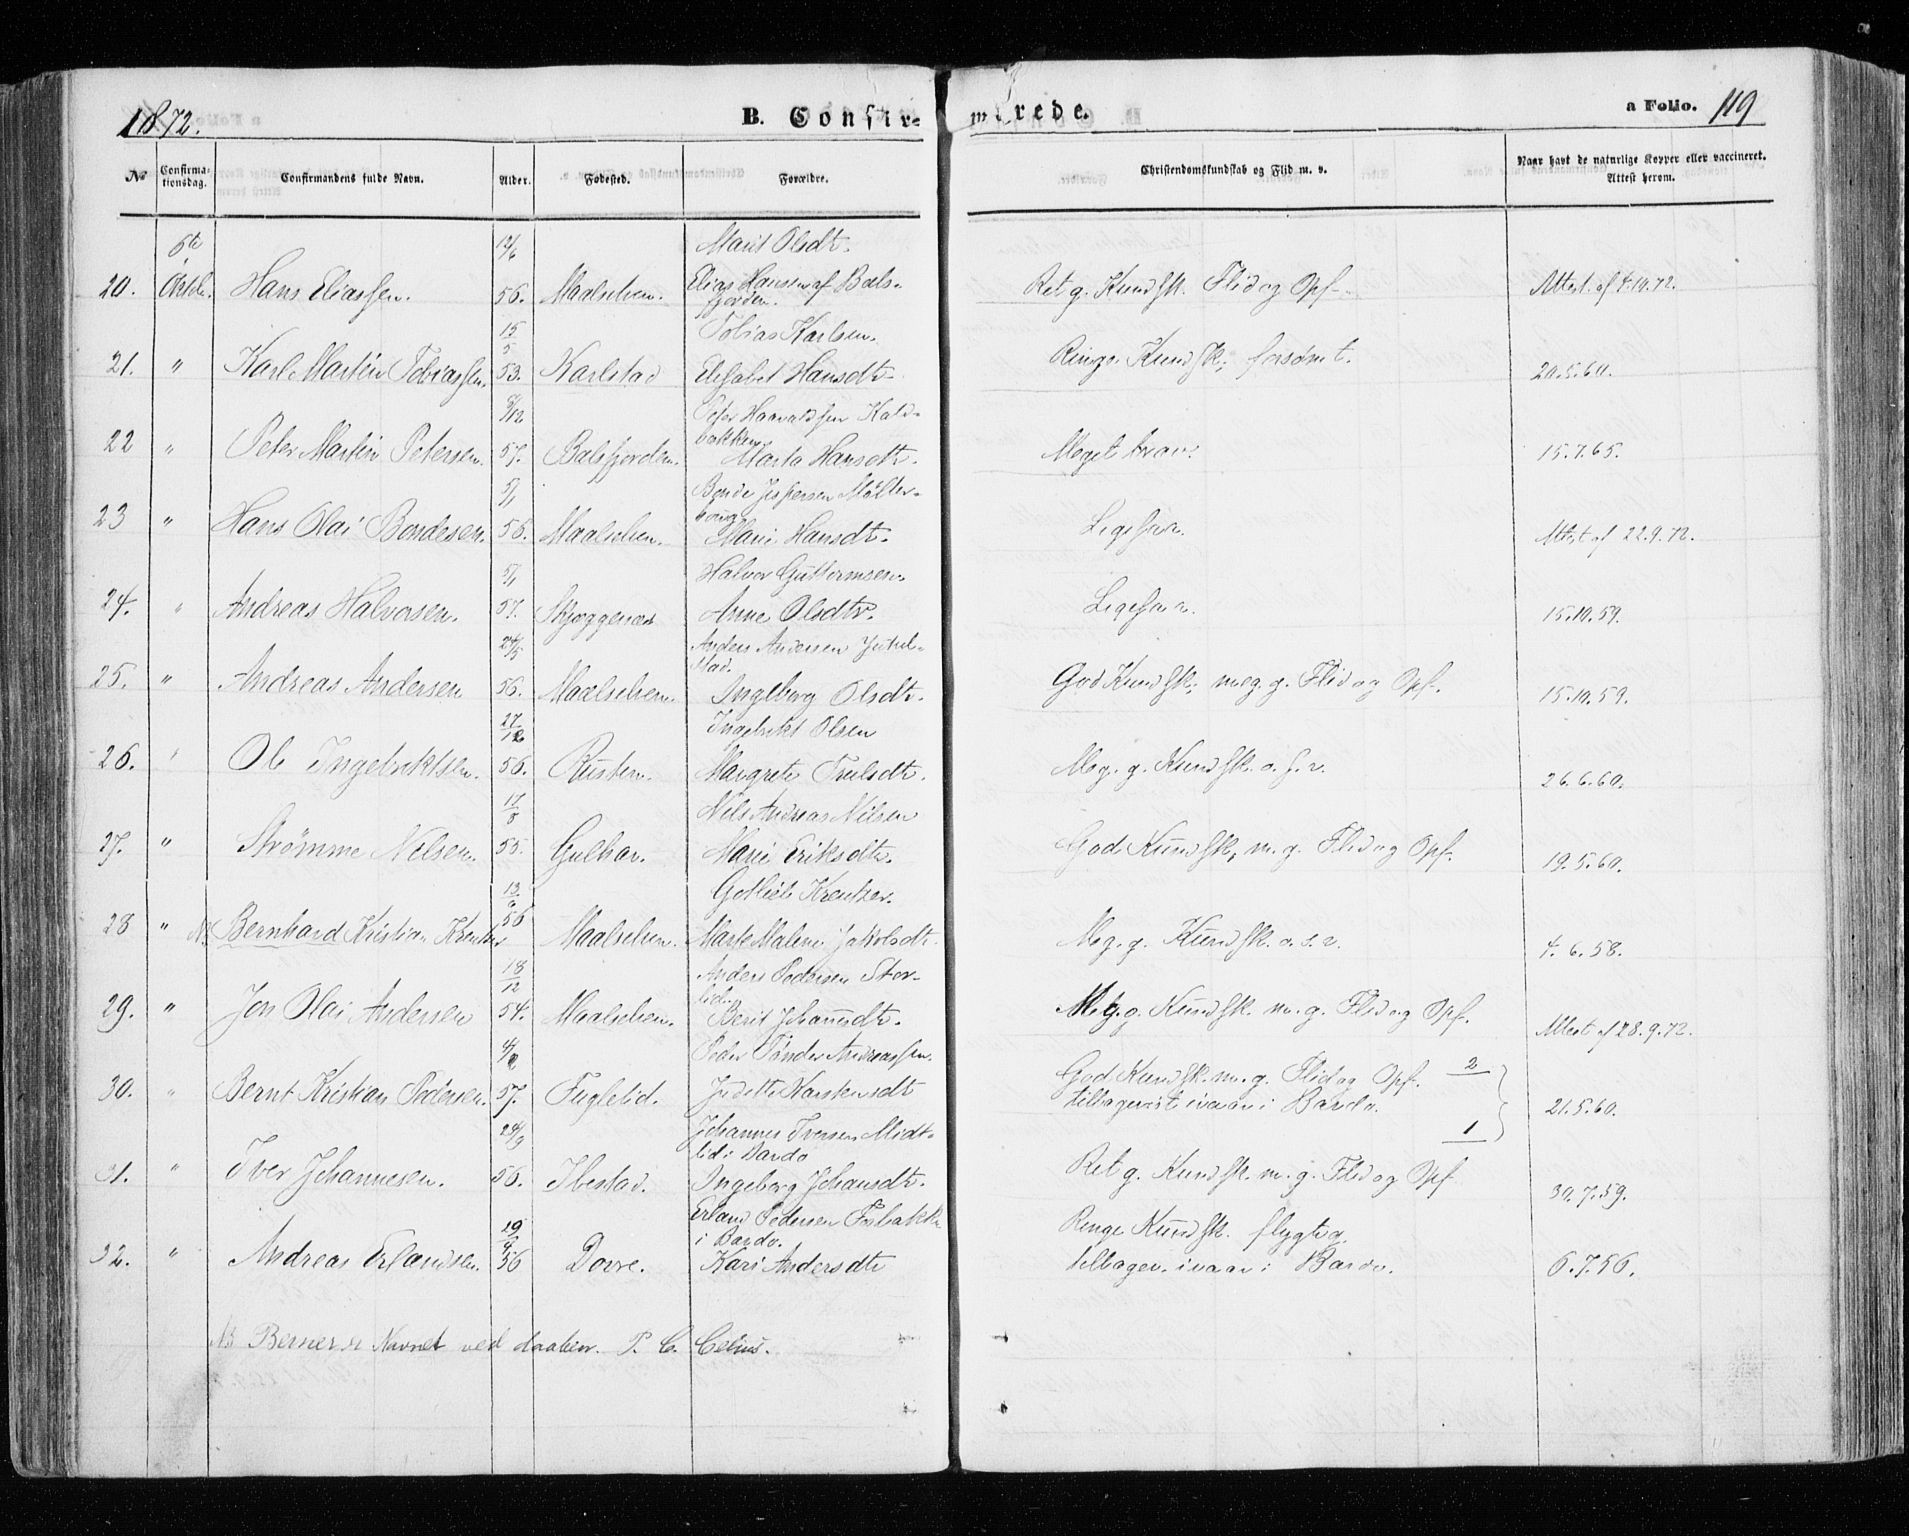 1872.
B. Confir-
merede.
a Folio. 119
No
Confirma-
tionsdag.
Confirmandens fulde Navn.
Alder.
Fødested.
Forældre.
Christendomskundskab og Flid m. v.
Naar havt de naturlige Kopper eller vaccineret.
Attest herom.
6te 12/6 Marit Olsdtr.
20. Octob. Hans Eliassen. 56. Maalselven. Elias Hansen af Bals- Ret g. Kundsk. Flid og Opf. Attest af 4.10.72.
fjorden.
15/5 Tobias Karlsen.
21. " Karl Martin Tobiassen. 53. Karlstad Elisabet Hansdtr. Ringe Kundsk; forsømt. 20.5.60.
8/12 Peter Haavaldsen Kald-
bakken
22 " Peter Martin Petersen. 57. Balsfjorden. Marta Hansdtr. Meget brav. 15.7.65.
5/1 Bonde Jespersen Møller-
23 " Hans Olai Bondesen. 56. Maalselven. Marie Hansdtr. Ligesaa. Attest af 22.9.72.
5/1 Halvor Guttormsen
24. " Andreas Halvorsen. 57. Skjæggenæs Anne Olsdtr. Ligesaa. 15.10.59.
24/5 Anders Andersen Jutul-
stad.
25. " Andreas Andersen 56. Maalselven. Ingeborg Olsdtr. God Kundsk; meg. g. Flid og Opf. 15.10.59.
27/12 Ingebrikt Olsen
26. " Ole Ingebriktsen. 56. Rusten. Margrete Trulsdtr. Meg. g. Kundsk. o. s. v. 26.6.60.
17/8 Nels Andreas Nilsen
27. " Strømme Nelsen. 55. Gulhav. Marie Eriksdtr. God Kundsk, m. g. Flid og Opf. 19.5.60.
Gotlieb Kreutzer.
28 " NB Bernhard Kristian Kreutzer 56 Maalselven. Marte Malene Jakobsdtr. Meg. g. Kundsk. o. s. v. 4.6.58.
18/12 Anders Pedersen Stor-
lid.
29. " Jon Olai Andersen 54. Maalselven. Berit Johansdtr. Meg. g. Kundsk. m. g. Flid og Opf. Attest af 28.9.72.
Peder Tønder Andreassen. 2
30. " Bernt Kristian Pedersen. 57. Fuglelid. Judette Karstensdtr God Kundsk. m. g. Flid og Opf.
tilbagevist ivaar i Bardo. 21.5.60.
24/9 Johannes Iversen Midt- 1
lid i Bardo
31. " Iver Johannesen. 56. Ibestad. Ingeborg Johansdtr. Ret g. Kundsk. m. g. Flid og Opf 30.7.59.
Erland Pedersen Fosbakk
i Bardo.
32. " Andreas Erlandsen. 56 Dovre. Kari Andersdtr Ringe Kundsk. flygtig.
tilbagev. ivaar i Bardo. 6.7.56.
NB Berner er Navnet ved daaben. P. C. Celius.